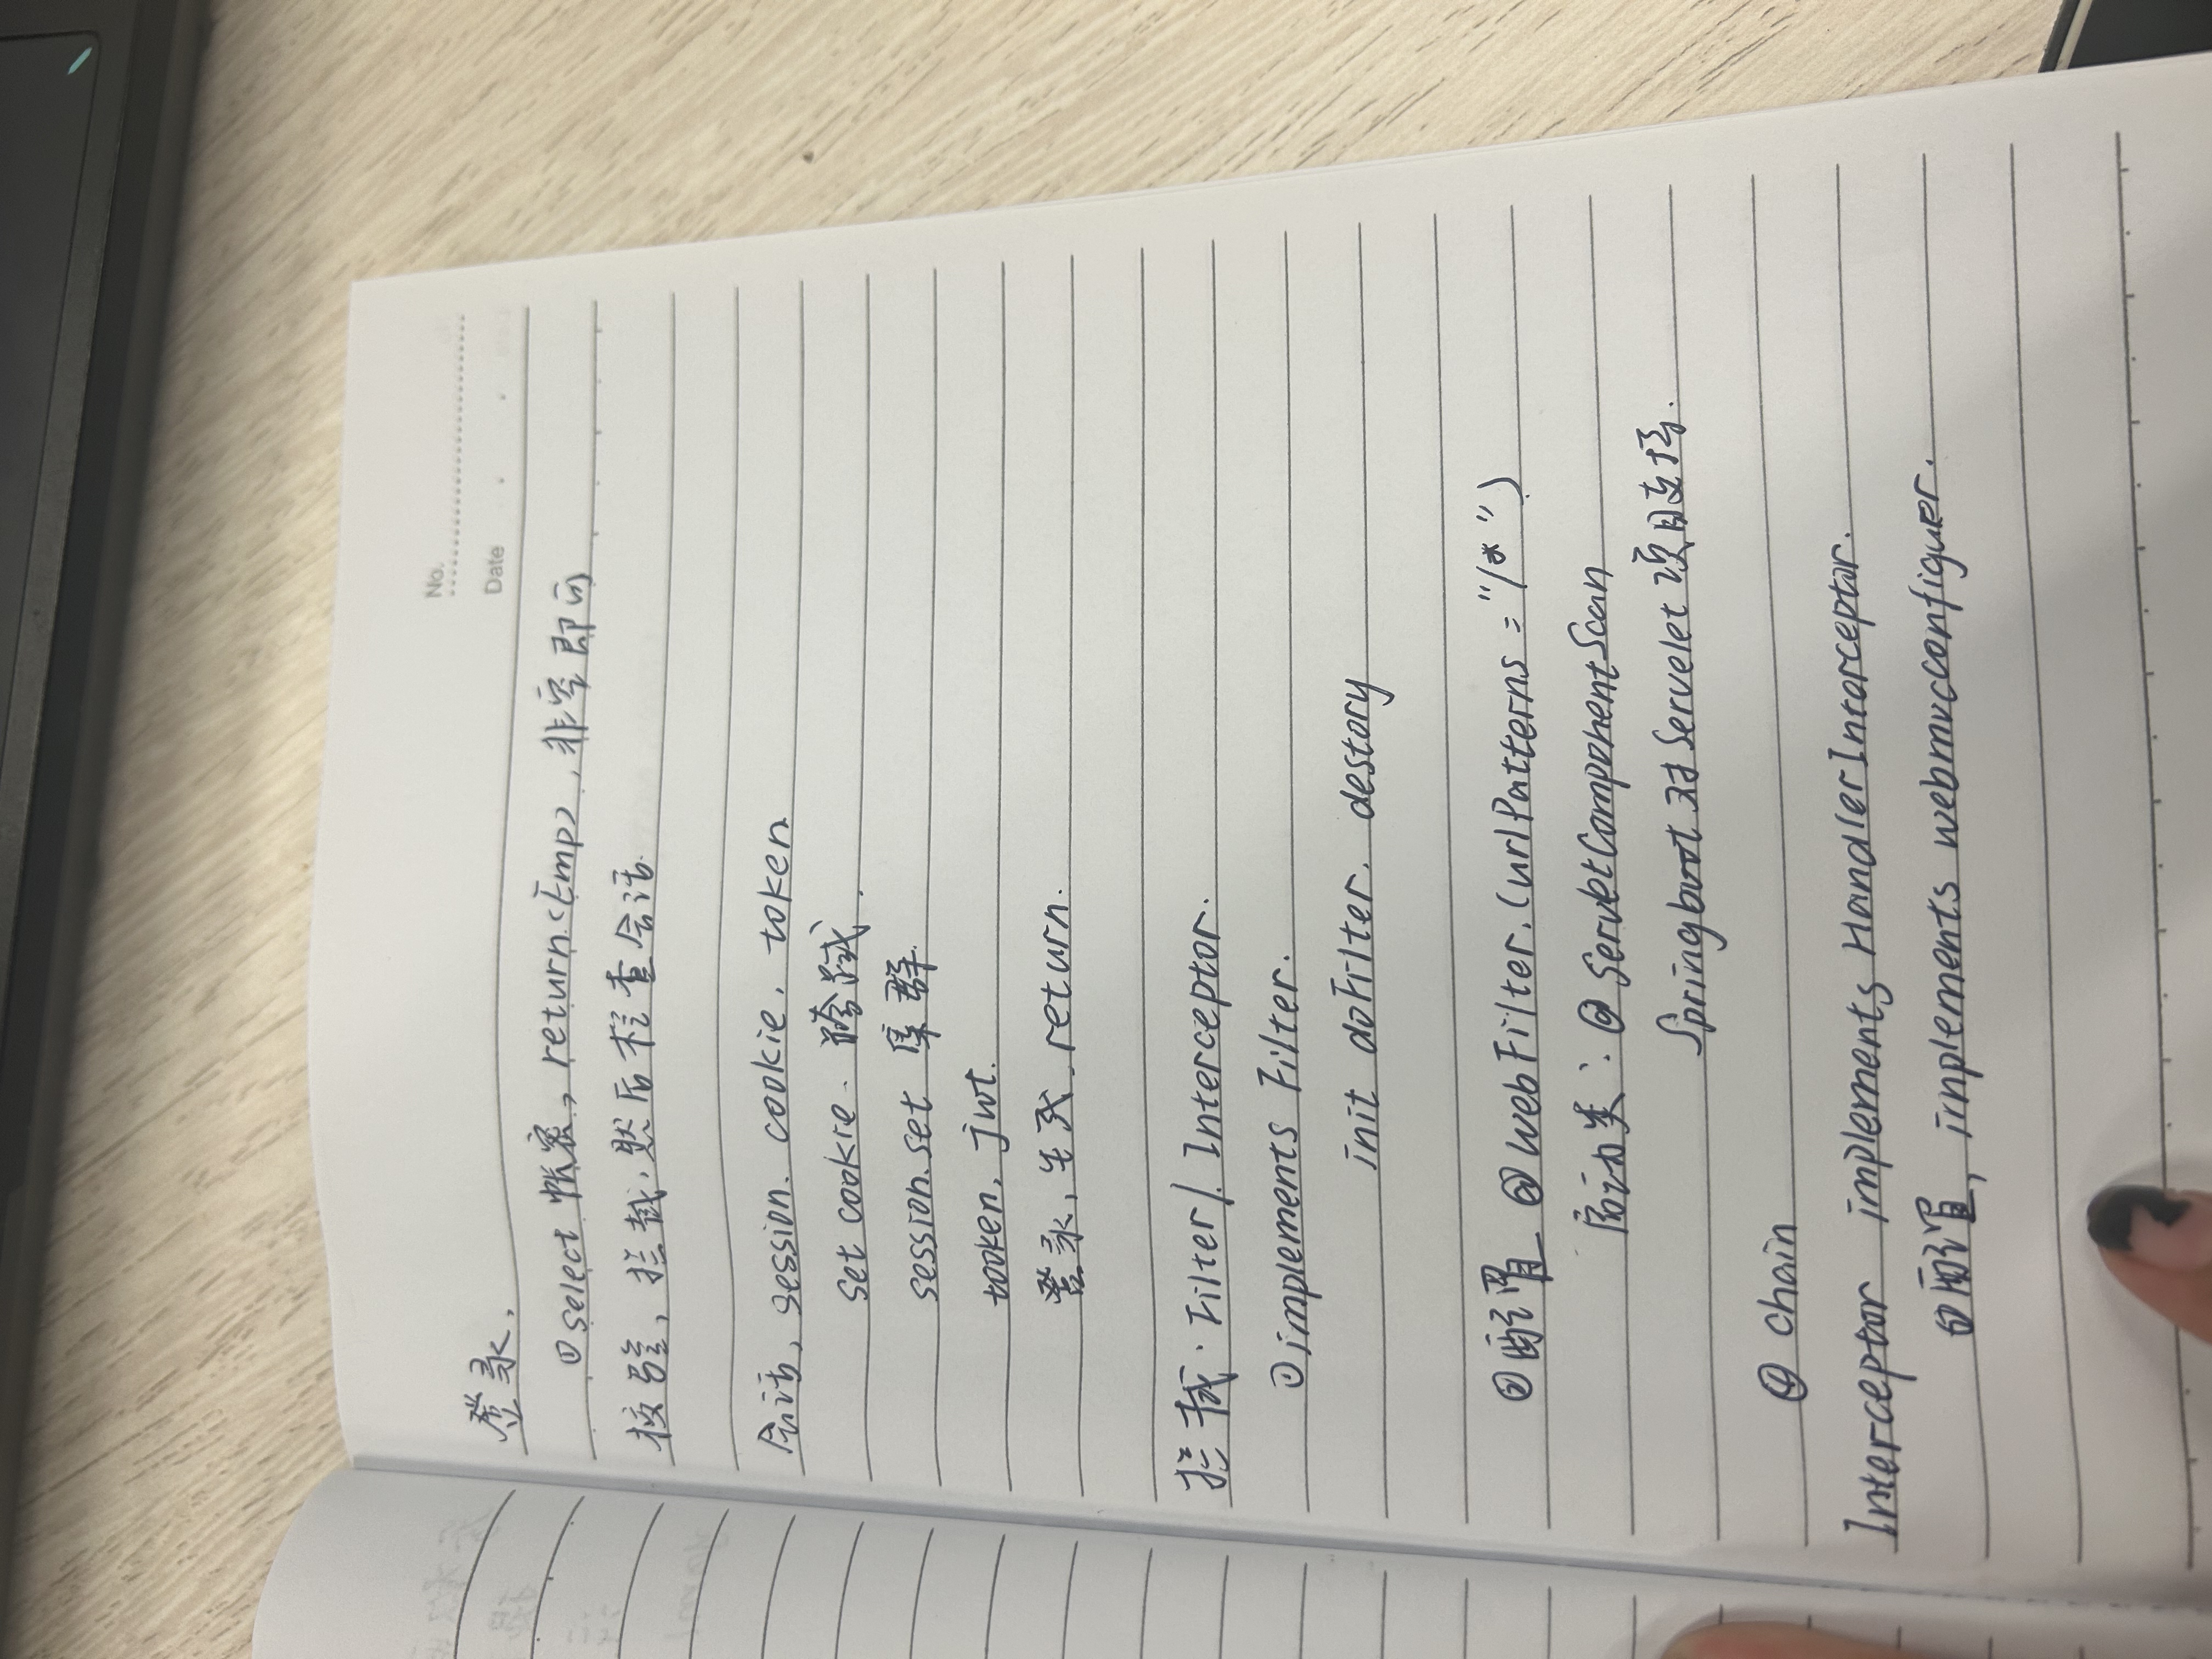 No.
Date
登录,
①select 帐密, return<Emp>, 非空即可
校验, 拦截, 然后检查会话.
会话, session. cookie. token
set cookie. 跨域.
session.set 集群.
tooken, jwt.
登录, 生成. return.
拦截. Filter/. Interceptor.
①implements Filter.
init doFilter. destory
②配置 @WebFilter.(urlPatterns = "/*")
启动类: @ServletComponentScan
Springboot 对Servelet 项目支持.
④ chain
Interceptor implements HandlerInterceptor.
①配置, implements webmvcconfiguer.